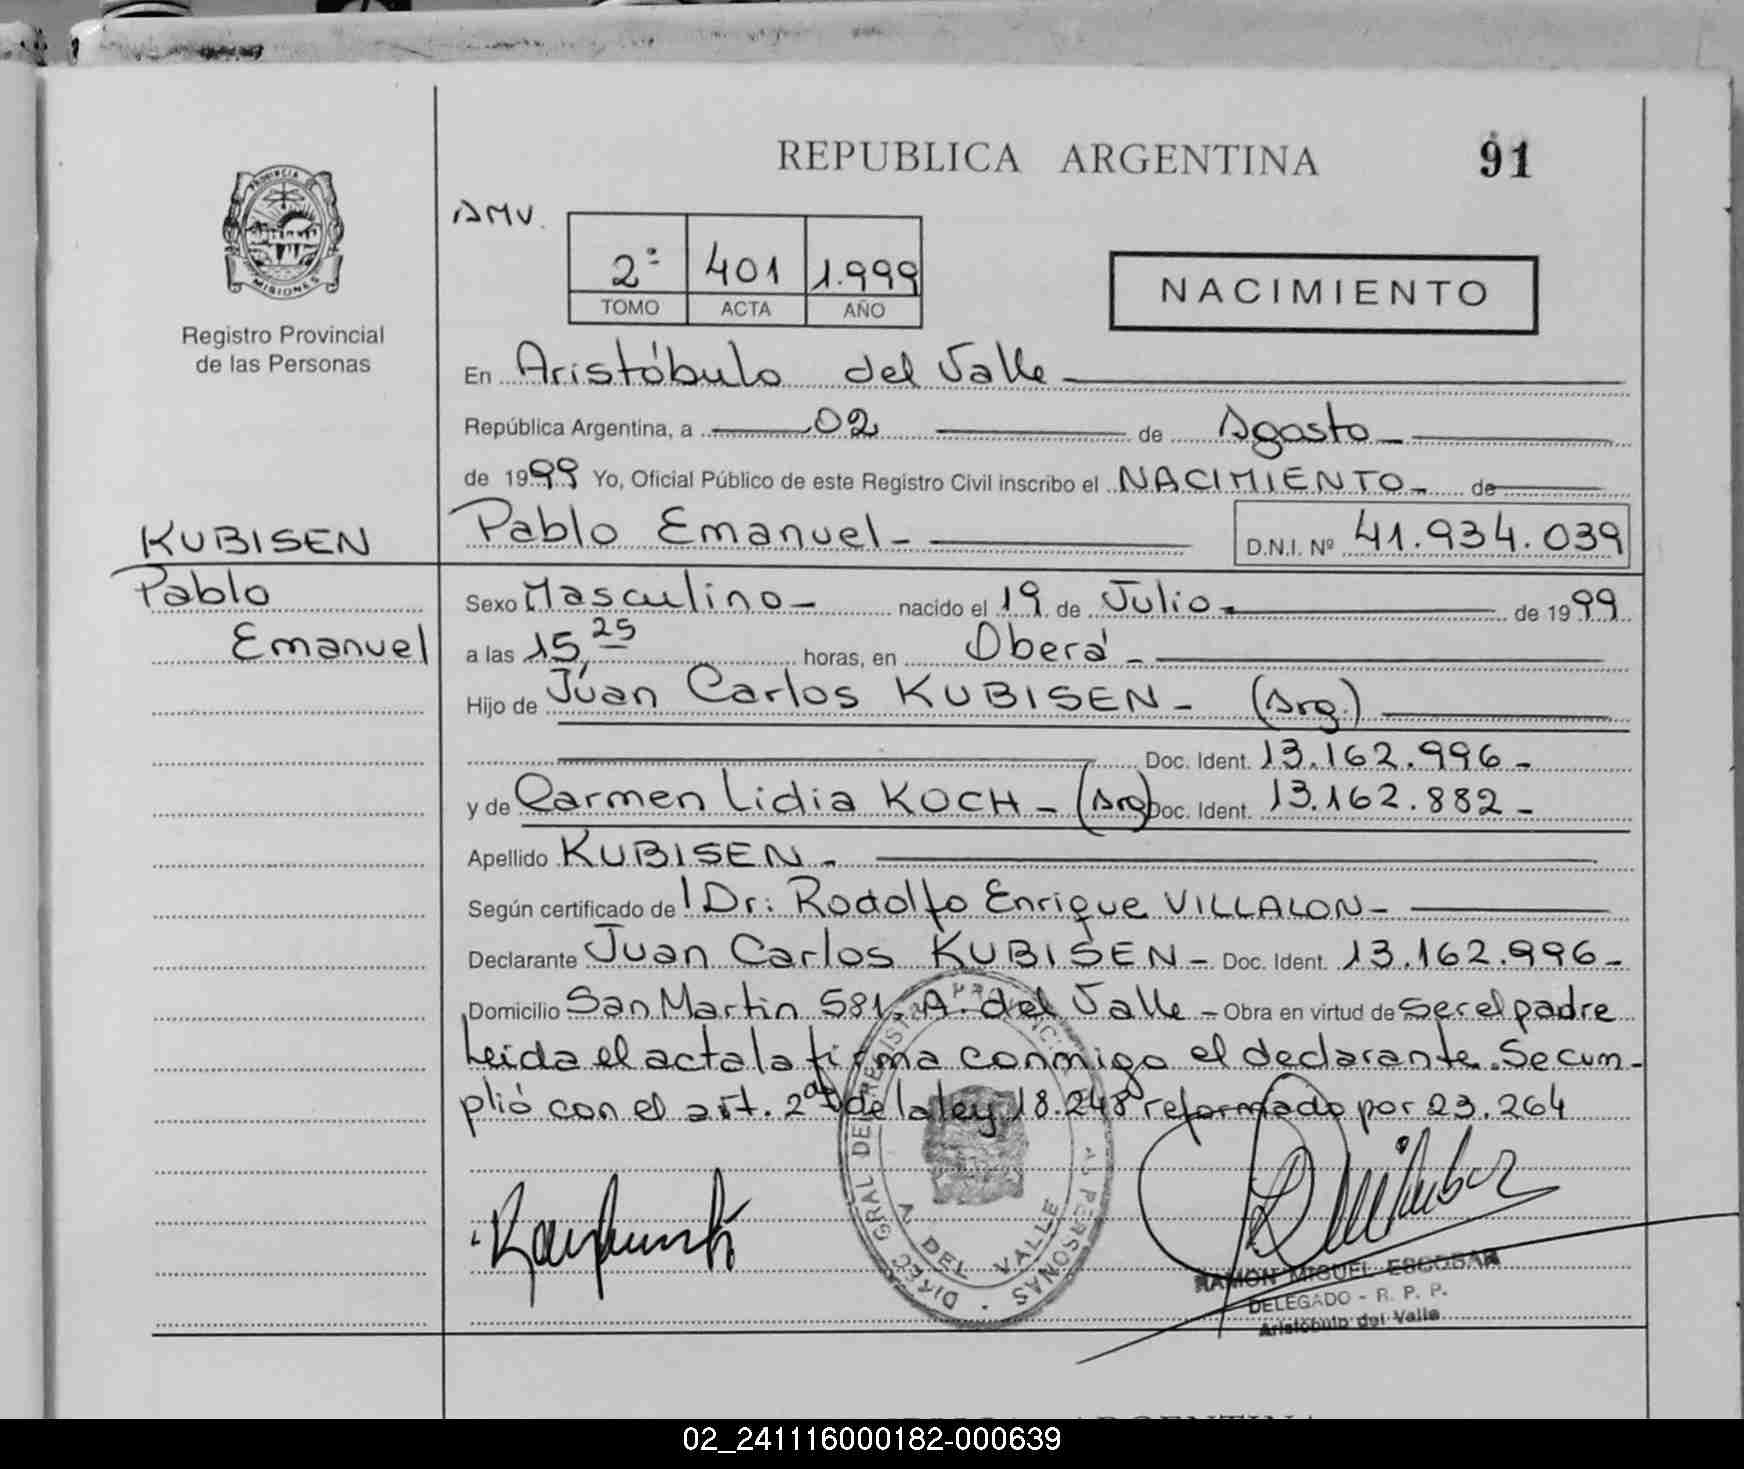 REPUBLICA ARGENTINA
91
PROVINCIA DE
MISIONES
Registro Provincial
de las Personas
AMV.
2º 401 1.999
TOMO ACTA AÑO
NACIMIENTO
En Aristóbulo del Valle
República Argentina, a 02 de Agosto
de 1999 Yo, Oficial Público de este Registro Civil inscribo el NACIMIENTO de
KUBISEN
Pablo
Emanuel
Pablo Emanuel D.N.I. Nº 41.934.039
Sexo Masculino nacido el 19 de Julio de 1999
a las 15,25 horas, en Oberá
Hijo de Juan Carlos KUBISEN (Arg.)
Doc. Ident. 13.162.996
y de Carmen Lidia KOCH (Arg) Doc. Ident. 13.162.882
Apellido KUBISEN
Según certificado de Dr: Rodolfo Enrique VILLALON
Declarante Juan Carlos KUBISEN Doc. Ident. 13.162.996
Domicilio San Martin 581. A. del Valle Obra en virtud de ser el padre
Leida el acta la firma conmigo el declarante. Se cum-
plió con el art. 2º de la ley 18.248 reformado por 23.264
DIREC GRAL DEL REGISTRO PROVINCIAL DE LAS PERSONAS
A. DEL VALLE
RAMON MIGUEL ESCOBAR
DELEGADO - R. P. P.
Aristóbulo del Valle
REPUBLICA ARGENTINA
02_241116000182-000639